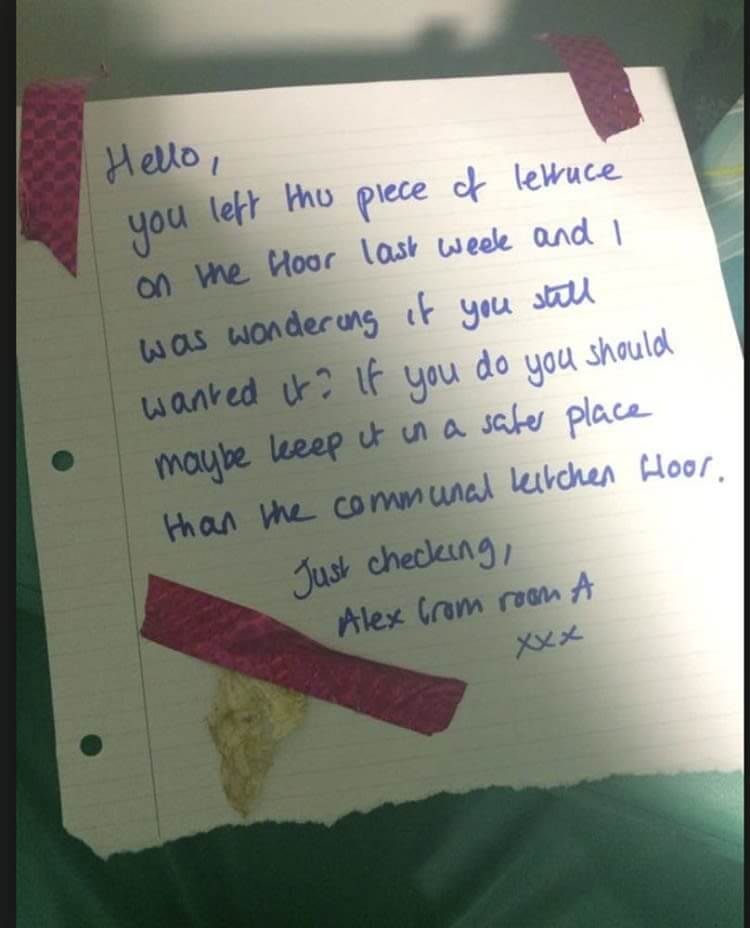 Hello,
you left this piece of lettuce
on the floor last week and I
was wondering if you still
wanted it? If you do you should
maybe keep it in a safer place
than the communal kitchen floor.
Just checking,
Alex from room A
xxx